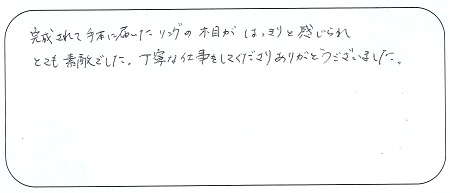 完成されて手本に届いたリングの木目がはっきりと感じられ
とても素敵でした。丁寧な仕事をしてくださりありがとうございました。